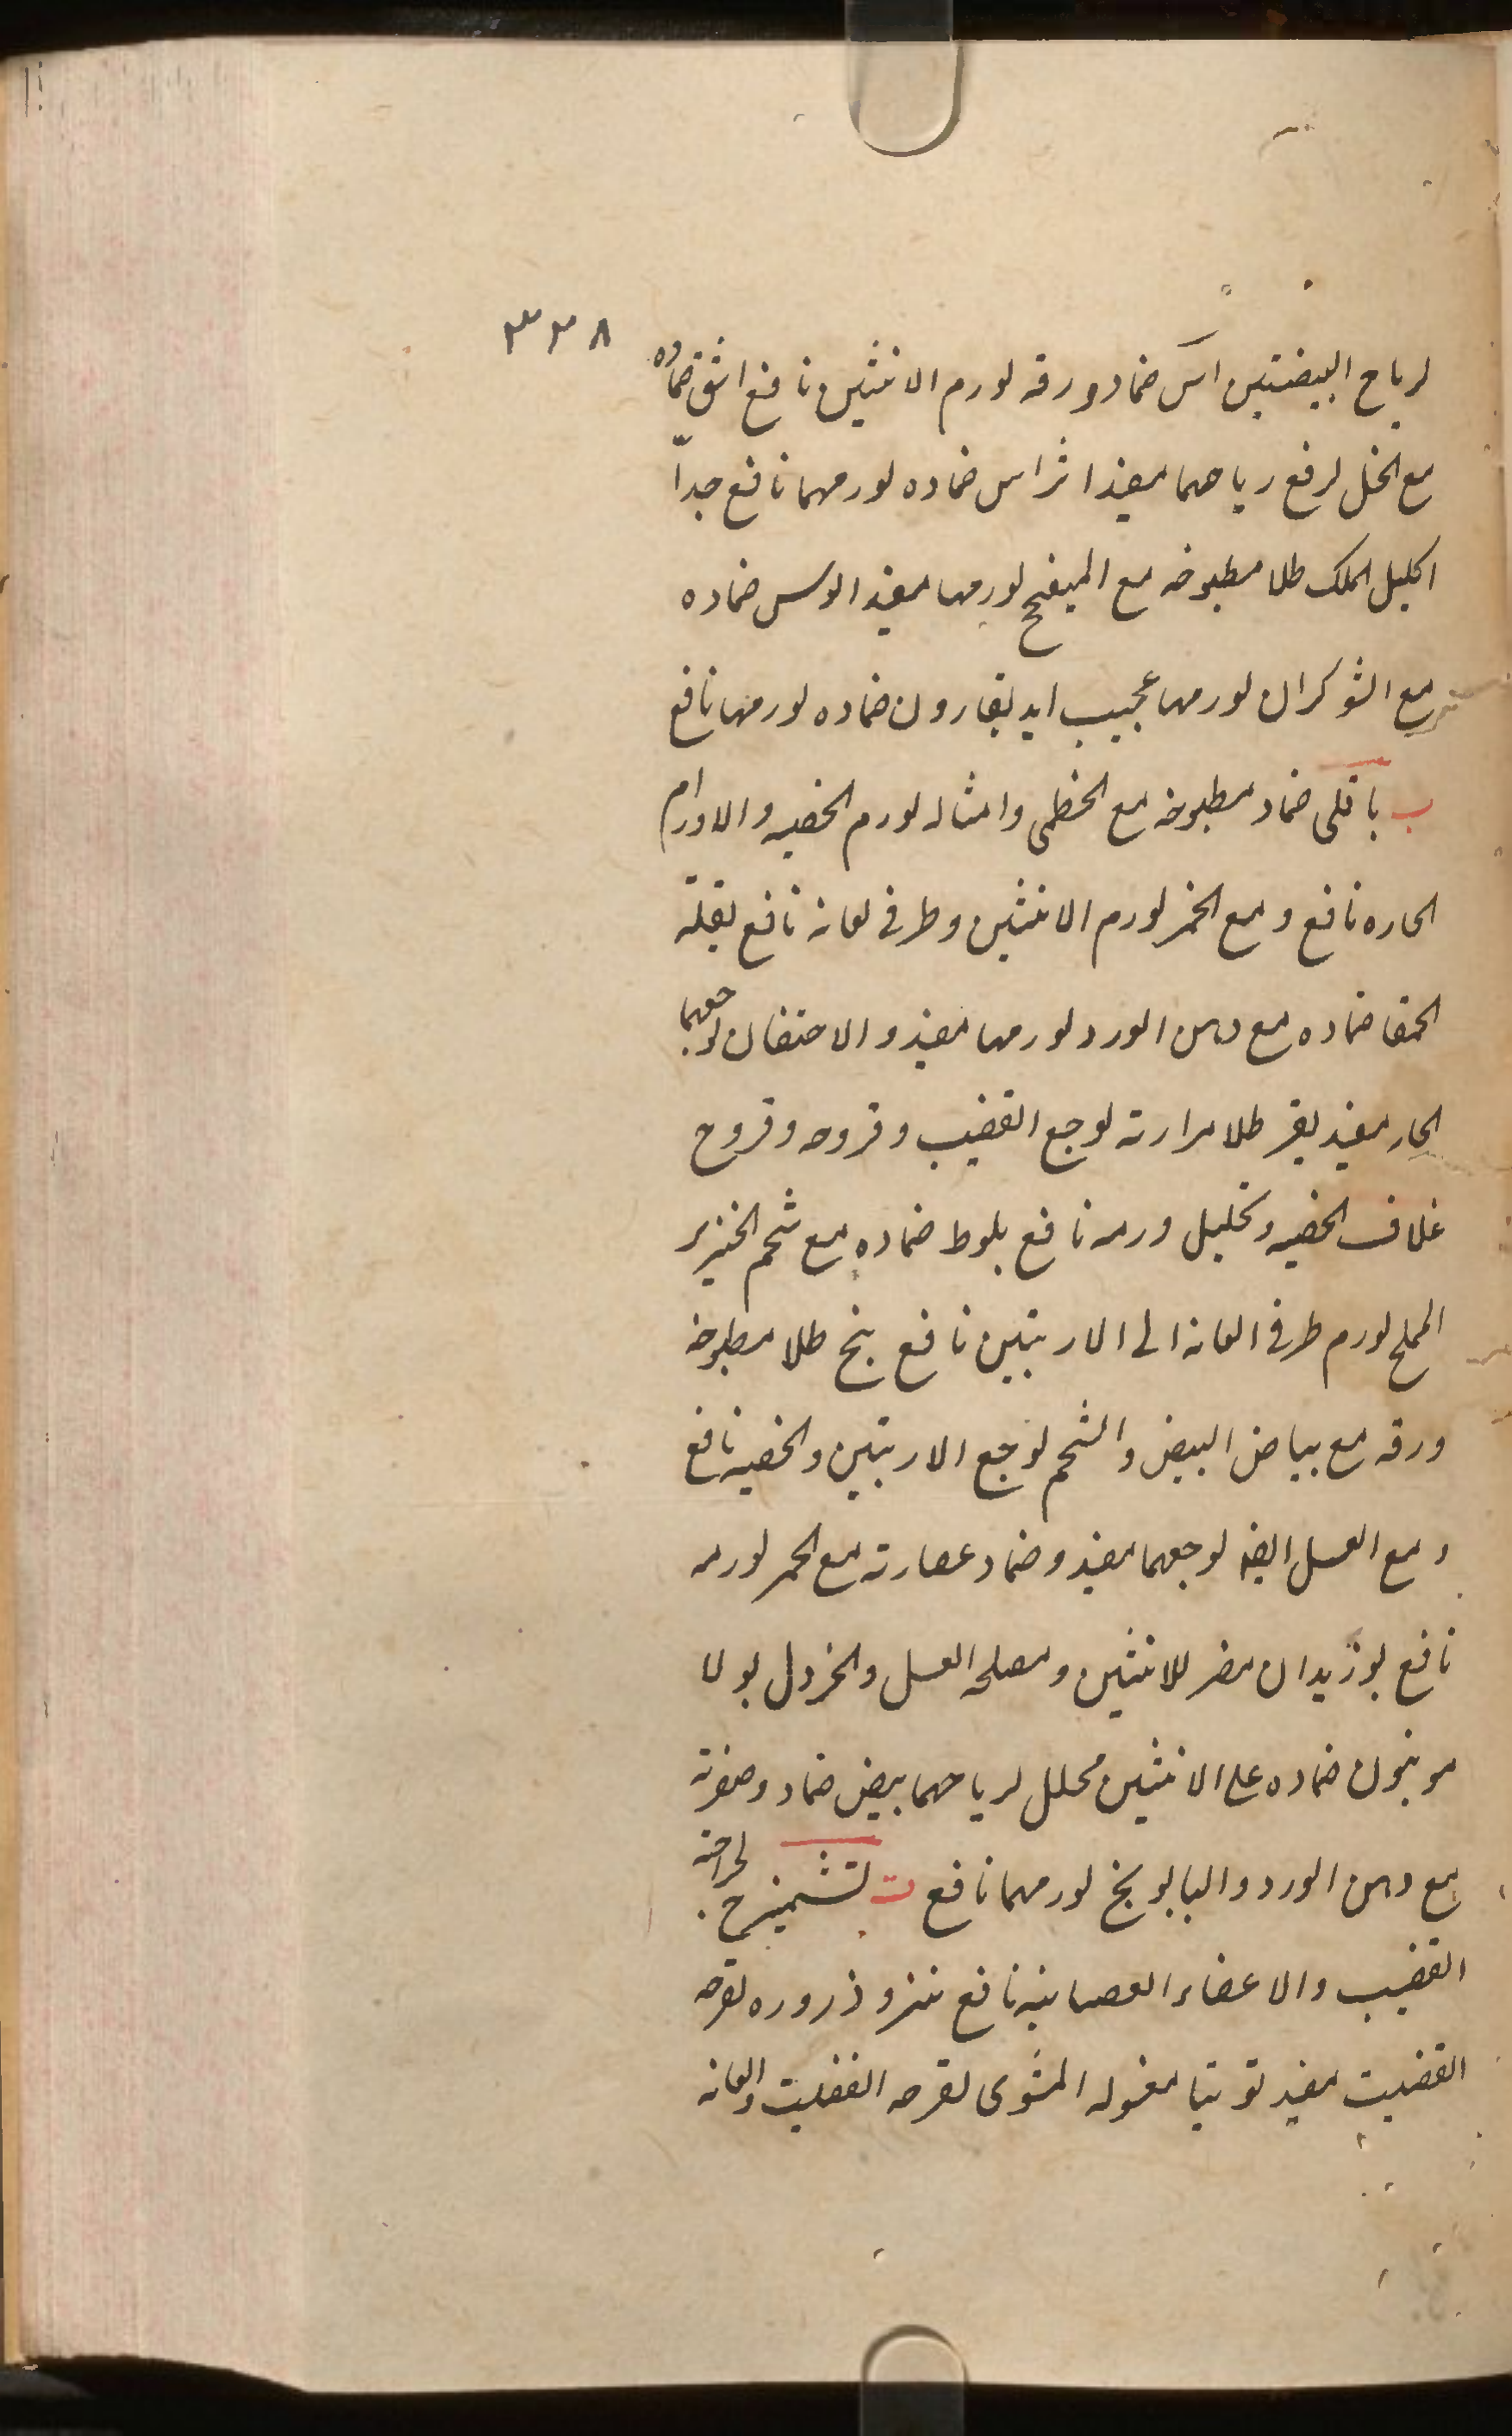 ٣٣٨
لرياح البيضتين آس ضماد ورقه لورم الانثيين نافع اشق ضماده
مع الخل لرفع رياحهما مفيد اثراس ضماده لورمهما نافع جداً
اكليل الملك طلا مطبوخه مع الميفختج لورمها مفيد الوسس ضماده
مع الشوكران لورمها عجيب ايديقارون ضماده لورمها نافع
ب باقلى ضماد مطبوخه مع الخطمى وامثاله لورم الخصيه والاورام
الحاره نافع ومع الخمر لورم الانثيين وطرفى لعانه نافع بقلة
الحمقا ضماده مع دهن الورد لورمها مفيد والاحتقان لوجعهما
الحار مفيد بقر طلا مرارته لوجع القضيب وقروحه وقروح
غلاف الخصيه وتحليل ورمه نافع بلوط ضماده مع شحم الخنزير
المملح لورم طرفى العانه الى الاربتين نافع بنج طلا مطبوخه
ورقه مع بياض البيض والشحم لوجع الاربتين والخصيه نافع
ومع العسل ايضا لوجعهما مفيد وضماد عصارته مع الخمر لورمه
نافع بوزيدان مضر للانثيين ومصلحه العسل والخردل بولا
مونيون ضماده على الانثيين محلل لرياحهما بيض ضماد وصفرته
مع دهن الورد والبابونج لورمهما نافع ت تشميزج لجراحة
القضيب والاعضاء العصبانيه نافع تنزو ذروره لقرحه
القضيب مفيد توتيا مغسوله المشوى لقرحه القضيب والعانه